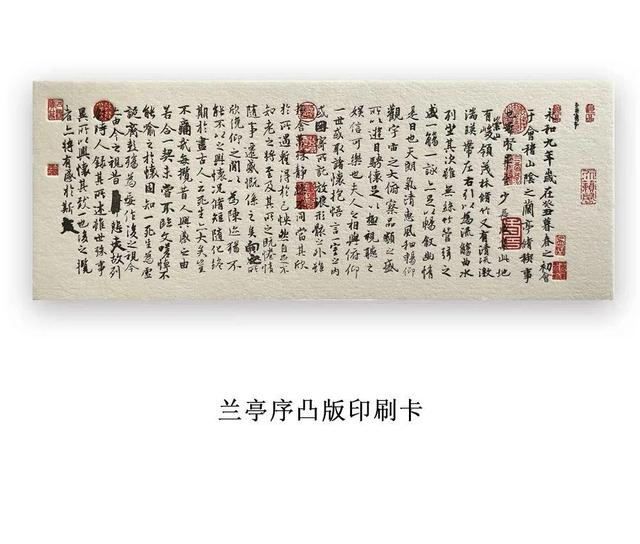 永和九年歲在癸丑暮春之初會
于會稽山陰之蘭亭脩稧事
也羣賢畢至少長咸集此地
有崇山峻領茂林脩竹又有清流激
湍暎帶左右引以為流觴曲水
列坐其次雖無絲竹管弦之
盛一觴一詠亦足以暢敘幽情
是日也天朗氣清惠風和暢仰
觀宇宙之大俯察品類之盛
所以遊目騁懷足以極視聽之
娛信可樂也夫人之相與俯仰
一世或取諸懷抱悟言一室之內
或因寄所託放浪形骸之外雖
趣舍萬殊靜躁不同當其欣
於所遇蹔得於己怏然自足不
知老之將至及其所之既惓情
隨事遷感慨係之矣向之所
欣俛仰之閒以為陳迹猶不
能不以之興懷況脩短隨化終
期於盡古人云死生亦大矣豈
不痛哉每攬昔人興感之由
若合一契未嘗不臨文嗟悼不
能喻之於懷固知一死生為虛
誕齊彭殤為妄作後之視今
亦由今之視昔悲夫故列
敘時人錄其所述雖世殊事
異所以興懷其致一也後之攬
者亦將有感於斯文
兰亭序凸版印刷卡